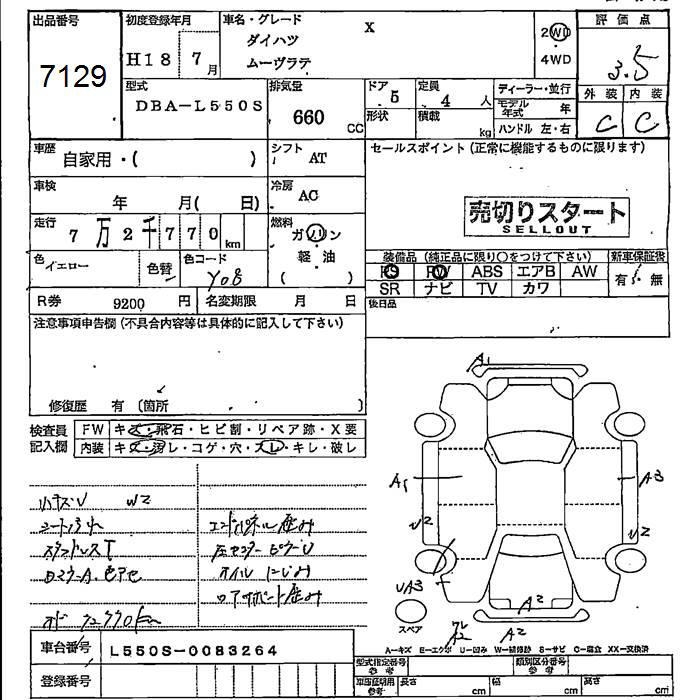 出品番号
7129
初度登録年月
H18 7月
車名・グレード
ダイハツ
ムーヴラテ
X
2WD
4WD
評価点
3.5
外装 内装
C C
型式
DBA-L550S
排気量
660 CC
ドア 5
形状
定員 4 人
積載 kg
ディーラー・並行
モデル年式 年
ハンドル 左・右
車歴
自家用・( )
シフト AT
セールスポイント (正常に機能するものに限ります)
売切りスタート
SELLOUT
車検 年 月( 日)
冷房 AC
走行 7万2千770km
燃料
ガソリン
軽・油
( )
色 イエロー
色替
色コード Y08
装備品 (純正品に限り○をつけて下さい)
新車保証書
PS PW ABS エアB AW
有・無
SR ナビ TV カワ
R券 9200 円
名変期限 月 日
後日品
注意事項申告欄 (不具合内容等は具体的に記入して下さい)
修復歴 有 (箇所
検査員記入欄
FW キズ・飛石・ヒビ割・リペア跡・X要
内装 キズ・汚レ・コゲ・穴・スレ・キレ・破レ
小キズU W2
エンドパネル歪み
スタッドレスT
オイルにじみ
ロアサポート歪み
A1
A1
A3
U2
U2
UA3
A2
A2
A2
スペア
A-キズ E-エクボ U-凹み W-補修跡 S-サビ C-腐食 XX-交換済
車台番号 L550S-0083264
登録番号
型式指定番号 参考
類別区分番号 参考
車庫証明用 参考
長さ cm
幅 cm
高さ cm